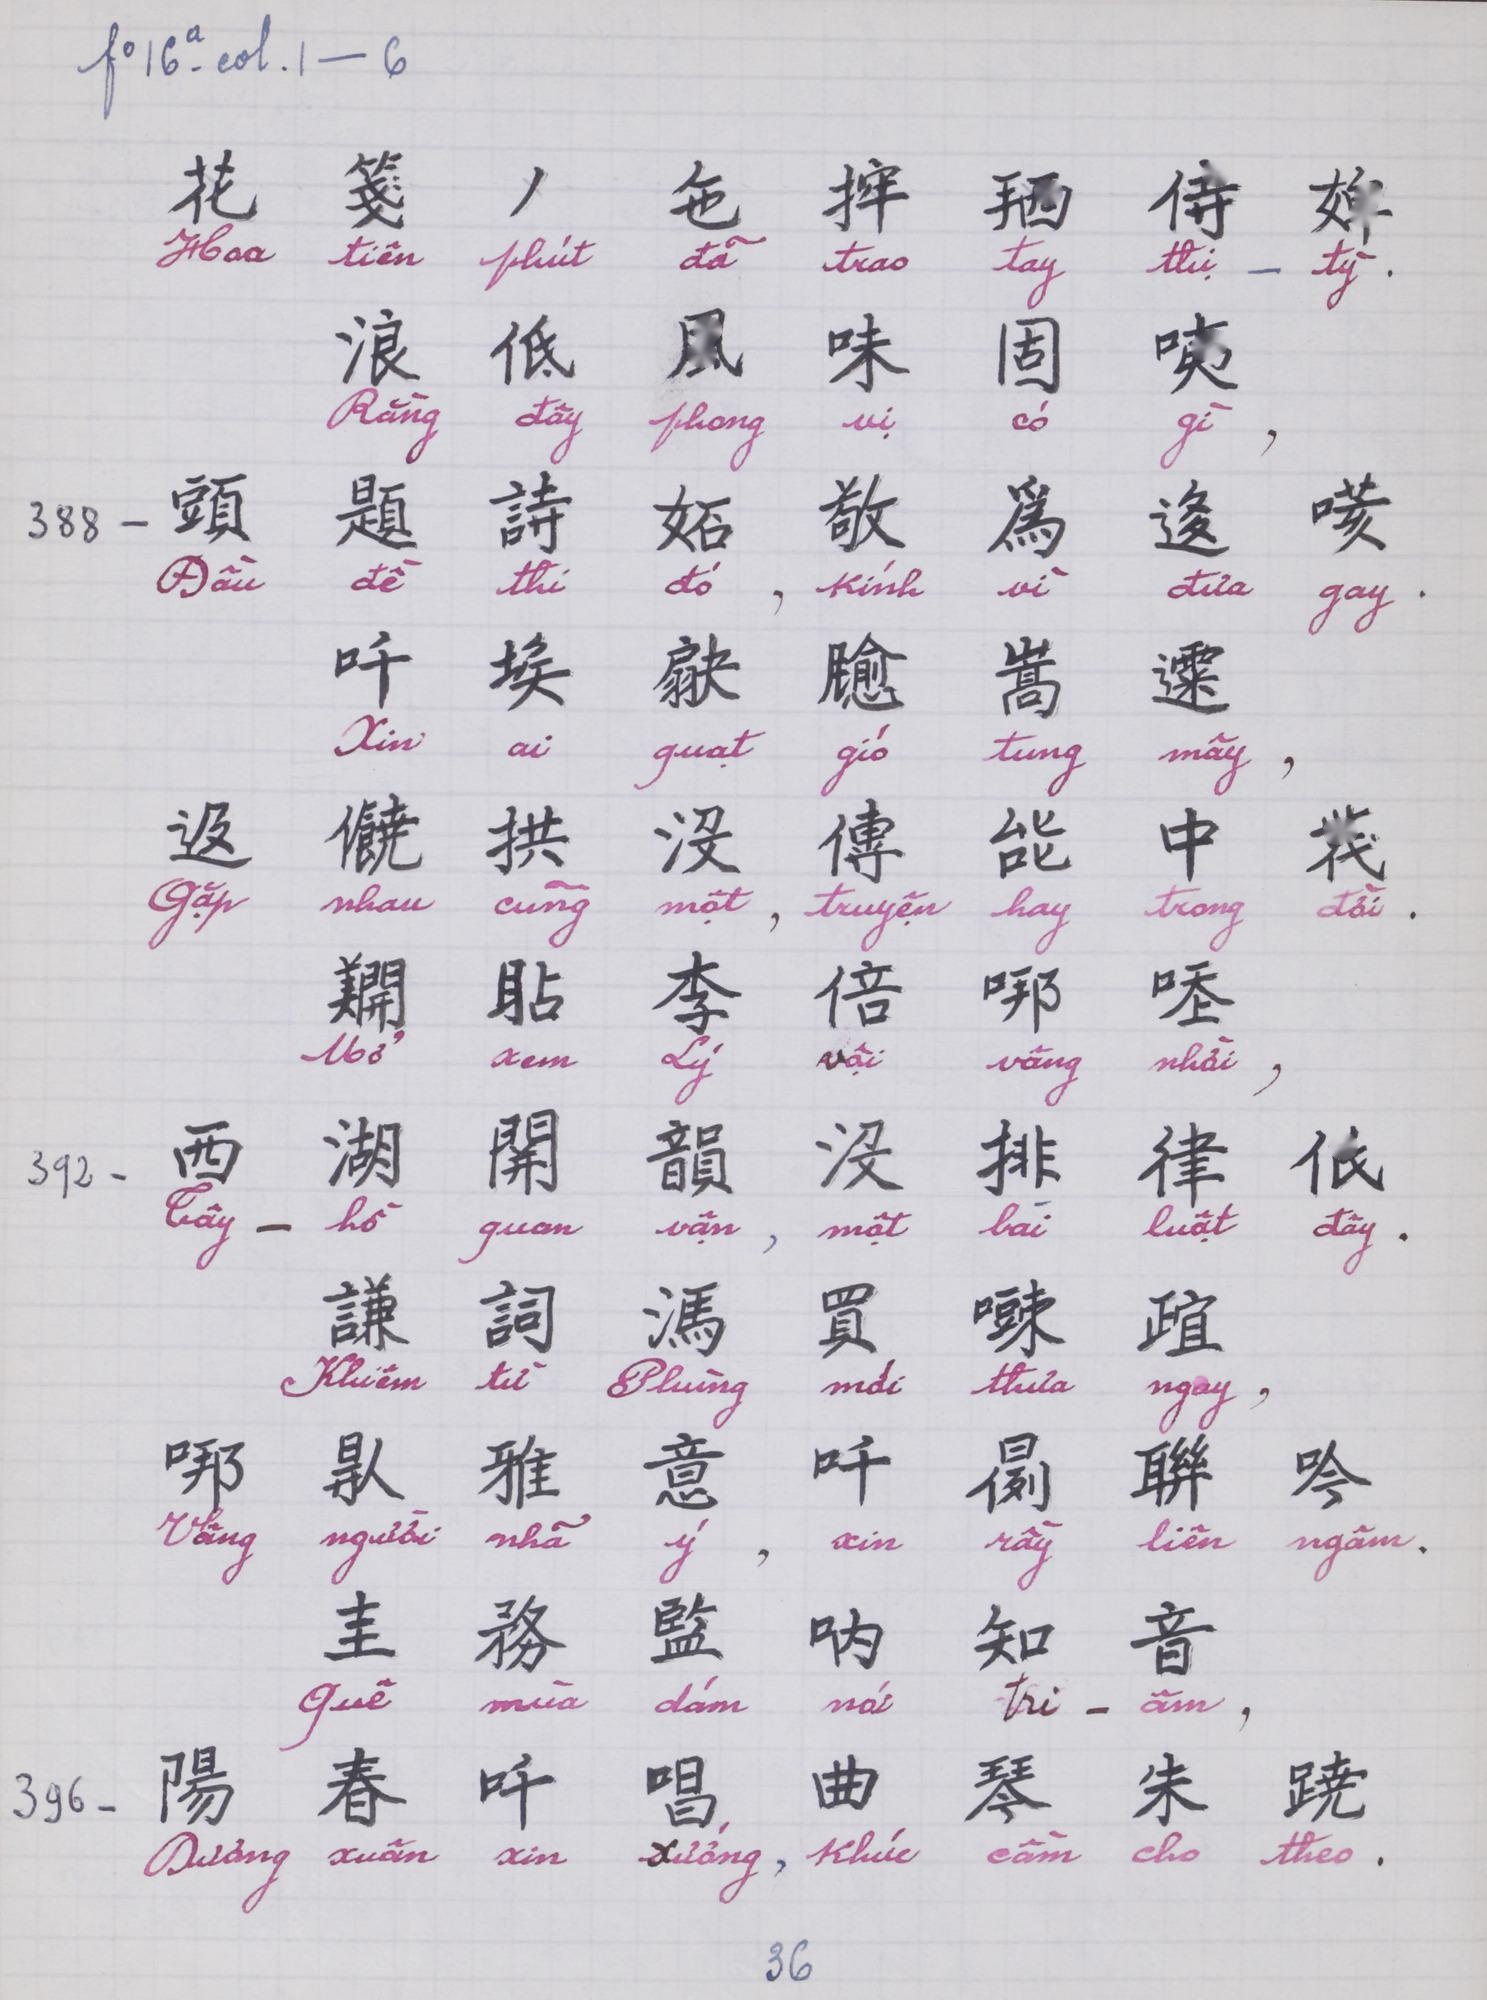 fº 16ª- col. 1 — 6
花 箋 丿 㐌 𢭂 𢬣 侍 婢
Hoa tiên phút đã trao tay thị – tỳ.
浪 低 風 味 固 咦
Rằng đây phong vị có gì,
388 – 頭 題 詩 妬 敬 爲 迻 𠹌
Đầu đề thi đó, kính vì đưa gay.
吀 埃 𦑗 𩙍 嵩 𩄲
Xin ai quạt gió tung mây,
𨔾 饒 拱 沒 傳 咍 中 𦰟
Gặp nhau cũng một, truyện hay trong đời.
𨷑 貼 李 倍 哪 𠳒
Mở xem Lý vội vâng nhời,
392 - 西 湖 開 韻 沒 排 律 低
Tây – hồ quan vận, một bài luật đây.
謙 詞 馮 買 𠽔 𣦍
Khiêm từ Phùng mới thưa ngay,
哪 𠎬 雅 意 吀 𠍵 聯 吟
Vâng người nhã ý, xin rầy liên ngâm.
圭 務 監 吶 知 音
Quê mùa dám nói tri – âm,
396 - 陽 春 吀 唱 曲 琴 朱 蹺
Dương xuân xin xướng, khúc cầm cho theo.
36